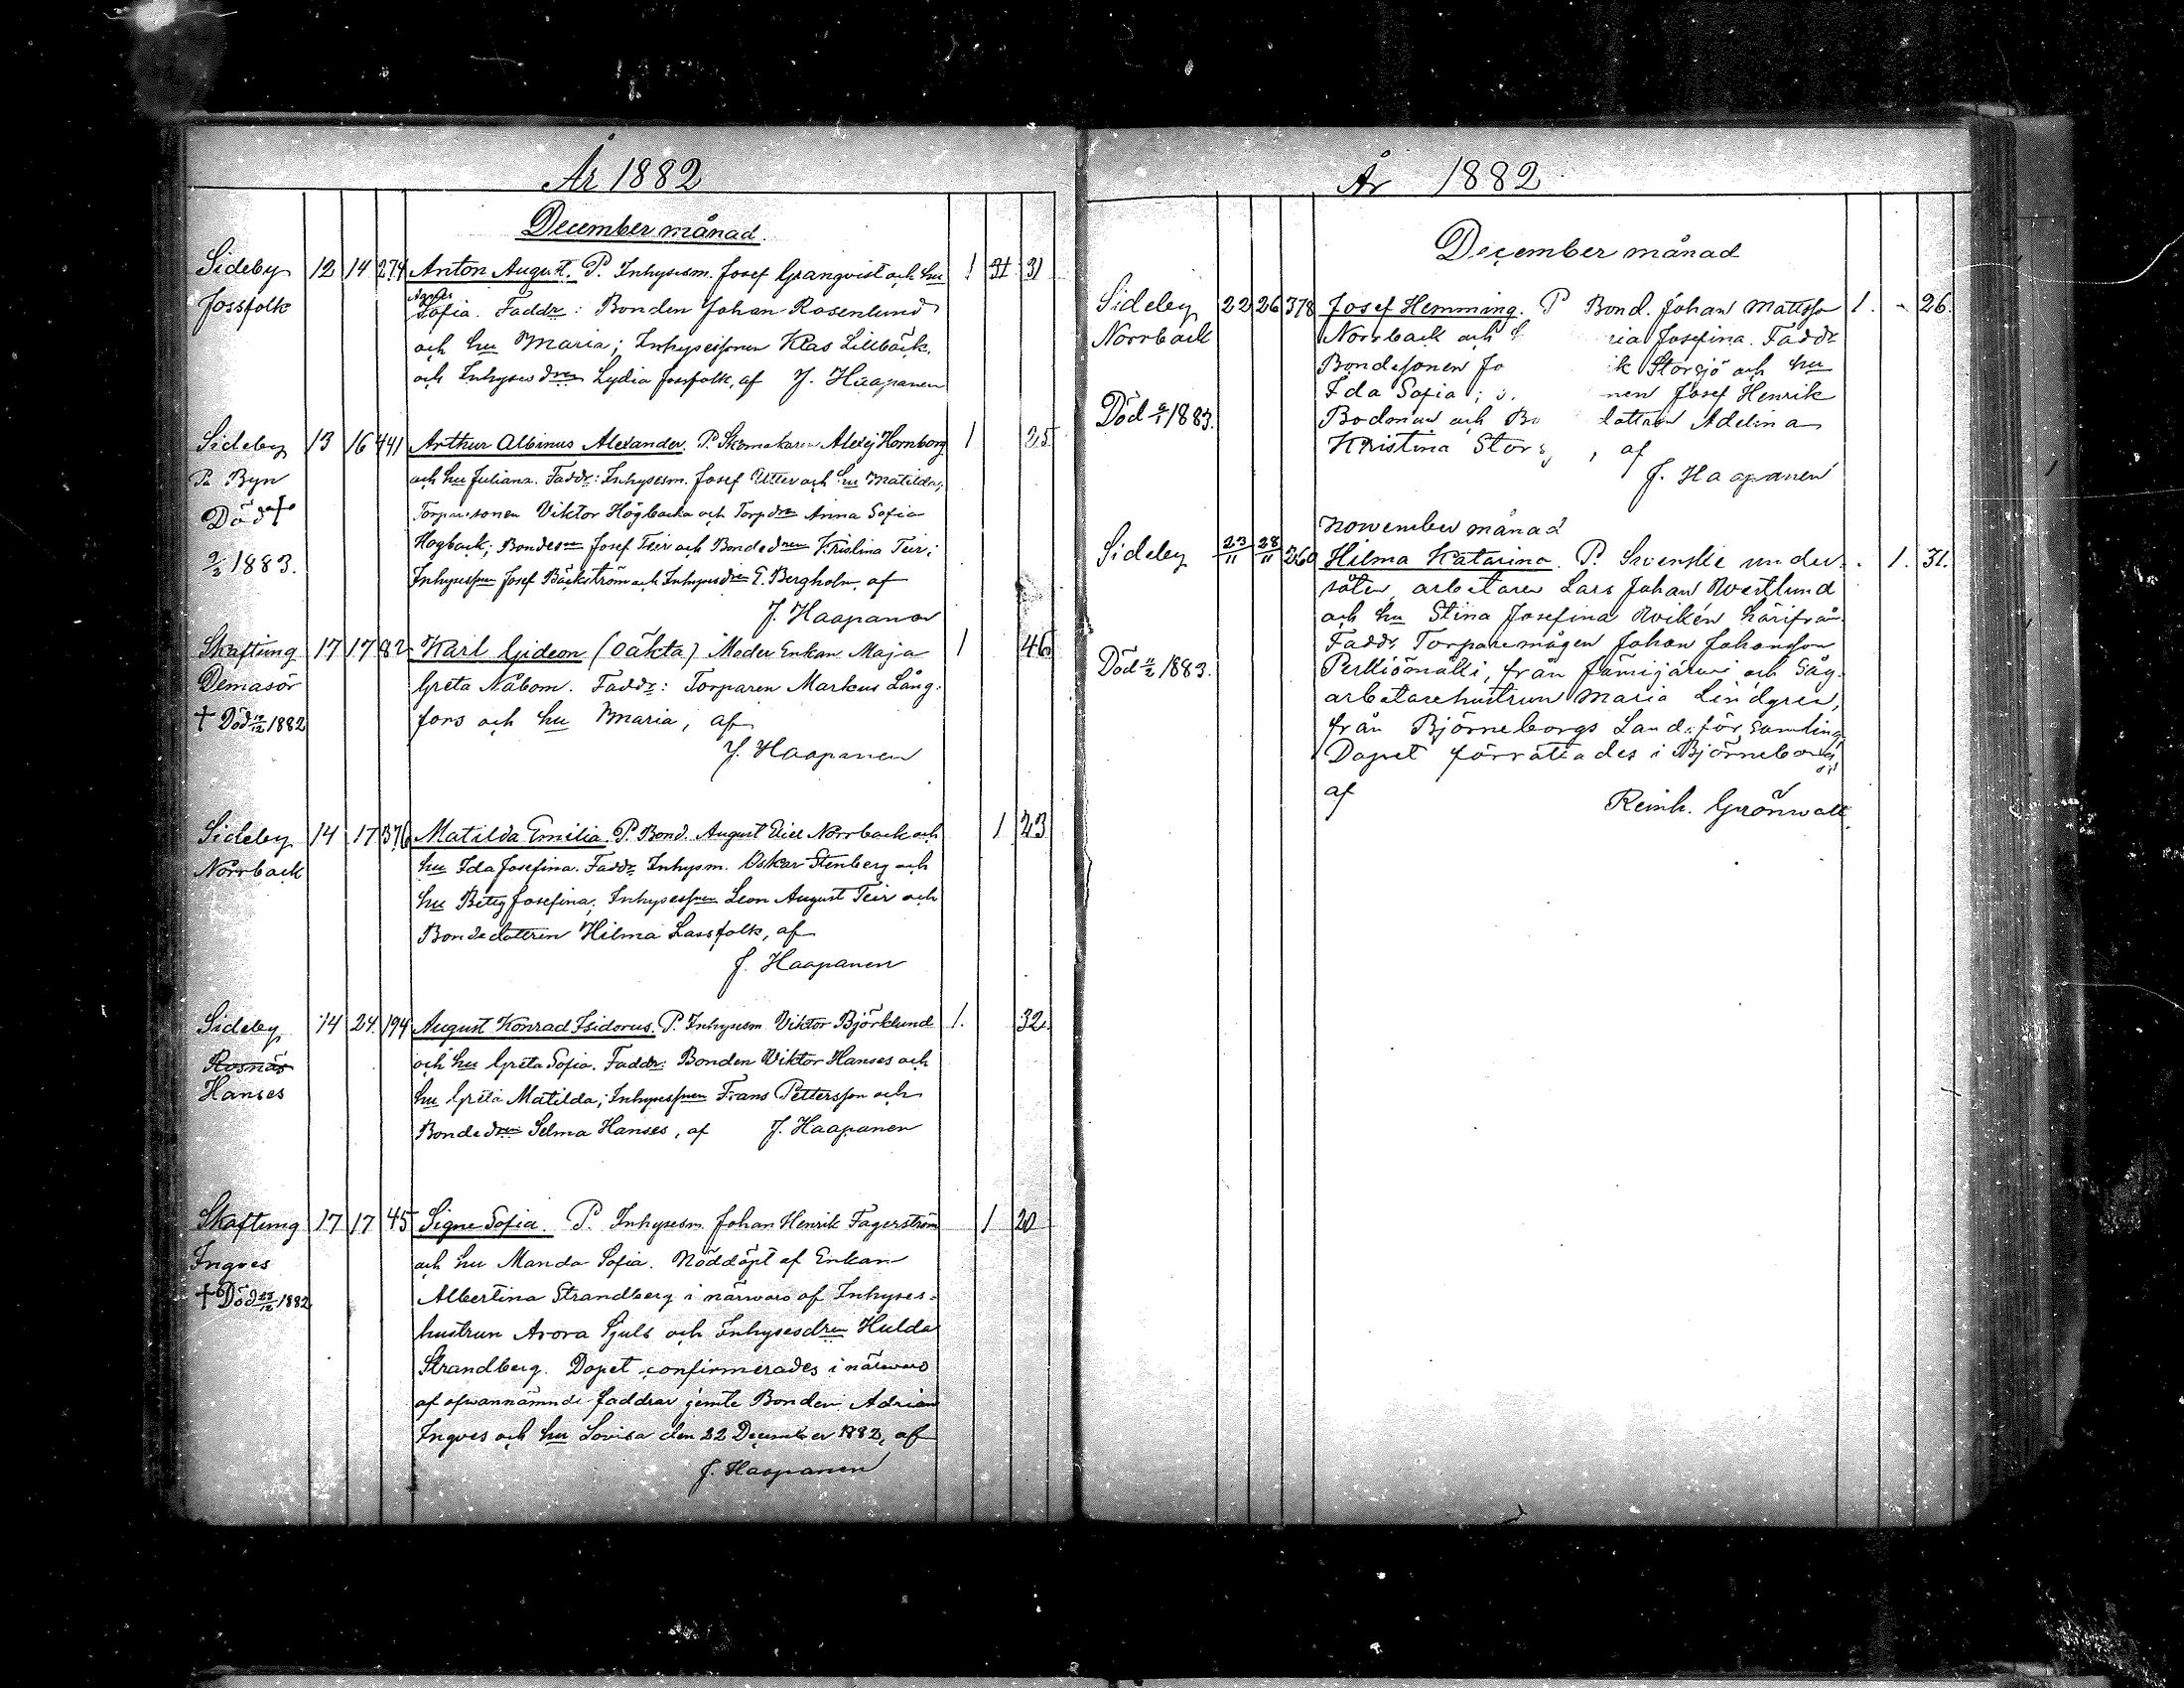 År 1882
December månad.
Sideby 12 14 274 Anton August. P. Inhysesm. Josef Granqvist och hu 1 31 31
Jossfolk Sofia. Faddr: Bonden Johan Rosenlund
och hu Maria; Inhysessonen Klas Lillbäck,
och Inhysesdren Lydia Jossfolk, af J. Haapanen
Sideby 13 16 441 Arthur Albinus Alexander. P. Skomakaren Alexej Hornborg 1 25
På Byn och hu Juliana. Faddr: Inhysesm. Josef Utter och hu Matilda;
Död Torparesonen Viktor Högbacka och Torpdren Anna Sofia
Högback; Bondeson Josef Teir och Bondednen Kristina Teir;
9/2 1883. Inhysesssnen Josef Bäckström och Inhysesdren E. Bergholm af
J. Haapanen
Skaftung 17 17 82 Karl Gideon (oäkta) Moder Enkan Maja 1 46
Demasör Greta Nåbom. Faddr: Torparen Markus Lång-
† Död 19/12 1882 fors och hu Maria, af
J. Haapanen
Sideby 14 17 376 Matilda Emilia. P. Bond. August Eliel Norrback och 1 23
Norrback hu Ida Josefina. Faddr Inhysm. Oskar Stenberg och
hu Betty Josefina; Inhysessnen Leon August Teir och
Bondedottren Hilma Lassfolk, af
J. Haapanen
Sideby 14 24 194 August Konrad Isidorus. P. Inhysesm Viktor Björklund 1. 32.
Rosnäs och hu Greta Sofia. Faddr: Bonden Viktor Hanses och
Hanses hu Greta Matilda; Inhysessnen Frans Pettersson och
Bondedren Selma Hanses, af J. Haapanen
Skaftung 17 17 45 Signe Sofia. P. Inhysesm. Johan Henrik Fagerström 1 20
Ingves och hu Manda Sofia. Nöddöpt af Enkan
† Död 23/12 1882 Albertina Strandberg i närwaro af Inhyses-
hustrun Arora Sjuls och Inhysesdren Hulda
Strandberg. Dopet confirmerades i närwaro
af ofwannämnde faddrar jemte Bonden Adrian
Ingves och hu Lovisa den 22 December 1882, af
J. Haapanen
År 1882
December månad
Sideby 22 26 378 Josef Hemming. P Bond. Johan Mattsso 1. 26.
Norrback Norrback och ria Josefina. Faddr
Bondesonen Jo ik Storsjö och hu
Ida Sofia; nen Josef Henrik
Död 1883. Bodman och Bo dottren Adelina
Kristina Stors , af
J. Haapanen
November månad
Sideby 23/11 28/11 260 Hilma Katarina. P. Swenske under- 1. 31.
såten, arbetaren Lars Johan Westlund
och hu Stina Josefina Wiken härifrån.
Faddr Torparemågen Johan Johansson
Död 11/2 1883. Perkiömälli, från Jämijärwi och Såg-
arbetarehustrun Maria Lindgren,
från Björneborgs Lands församling.
Dopet förrättades i Björneborg
af Reinh. Grönwall.